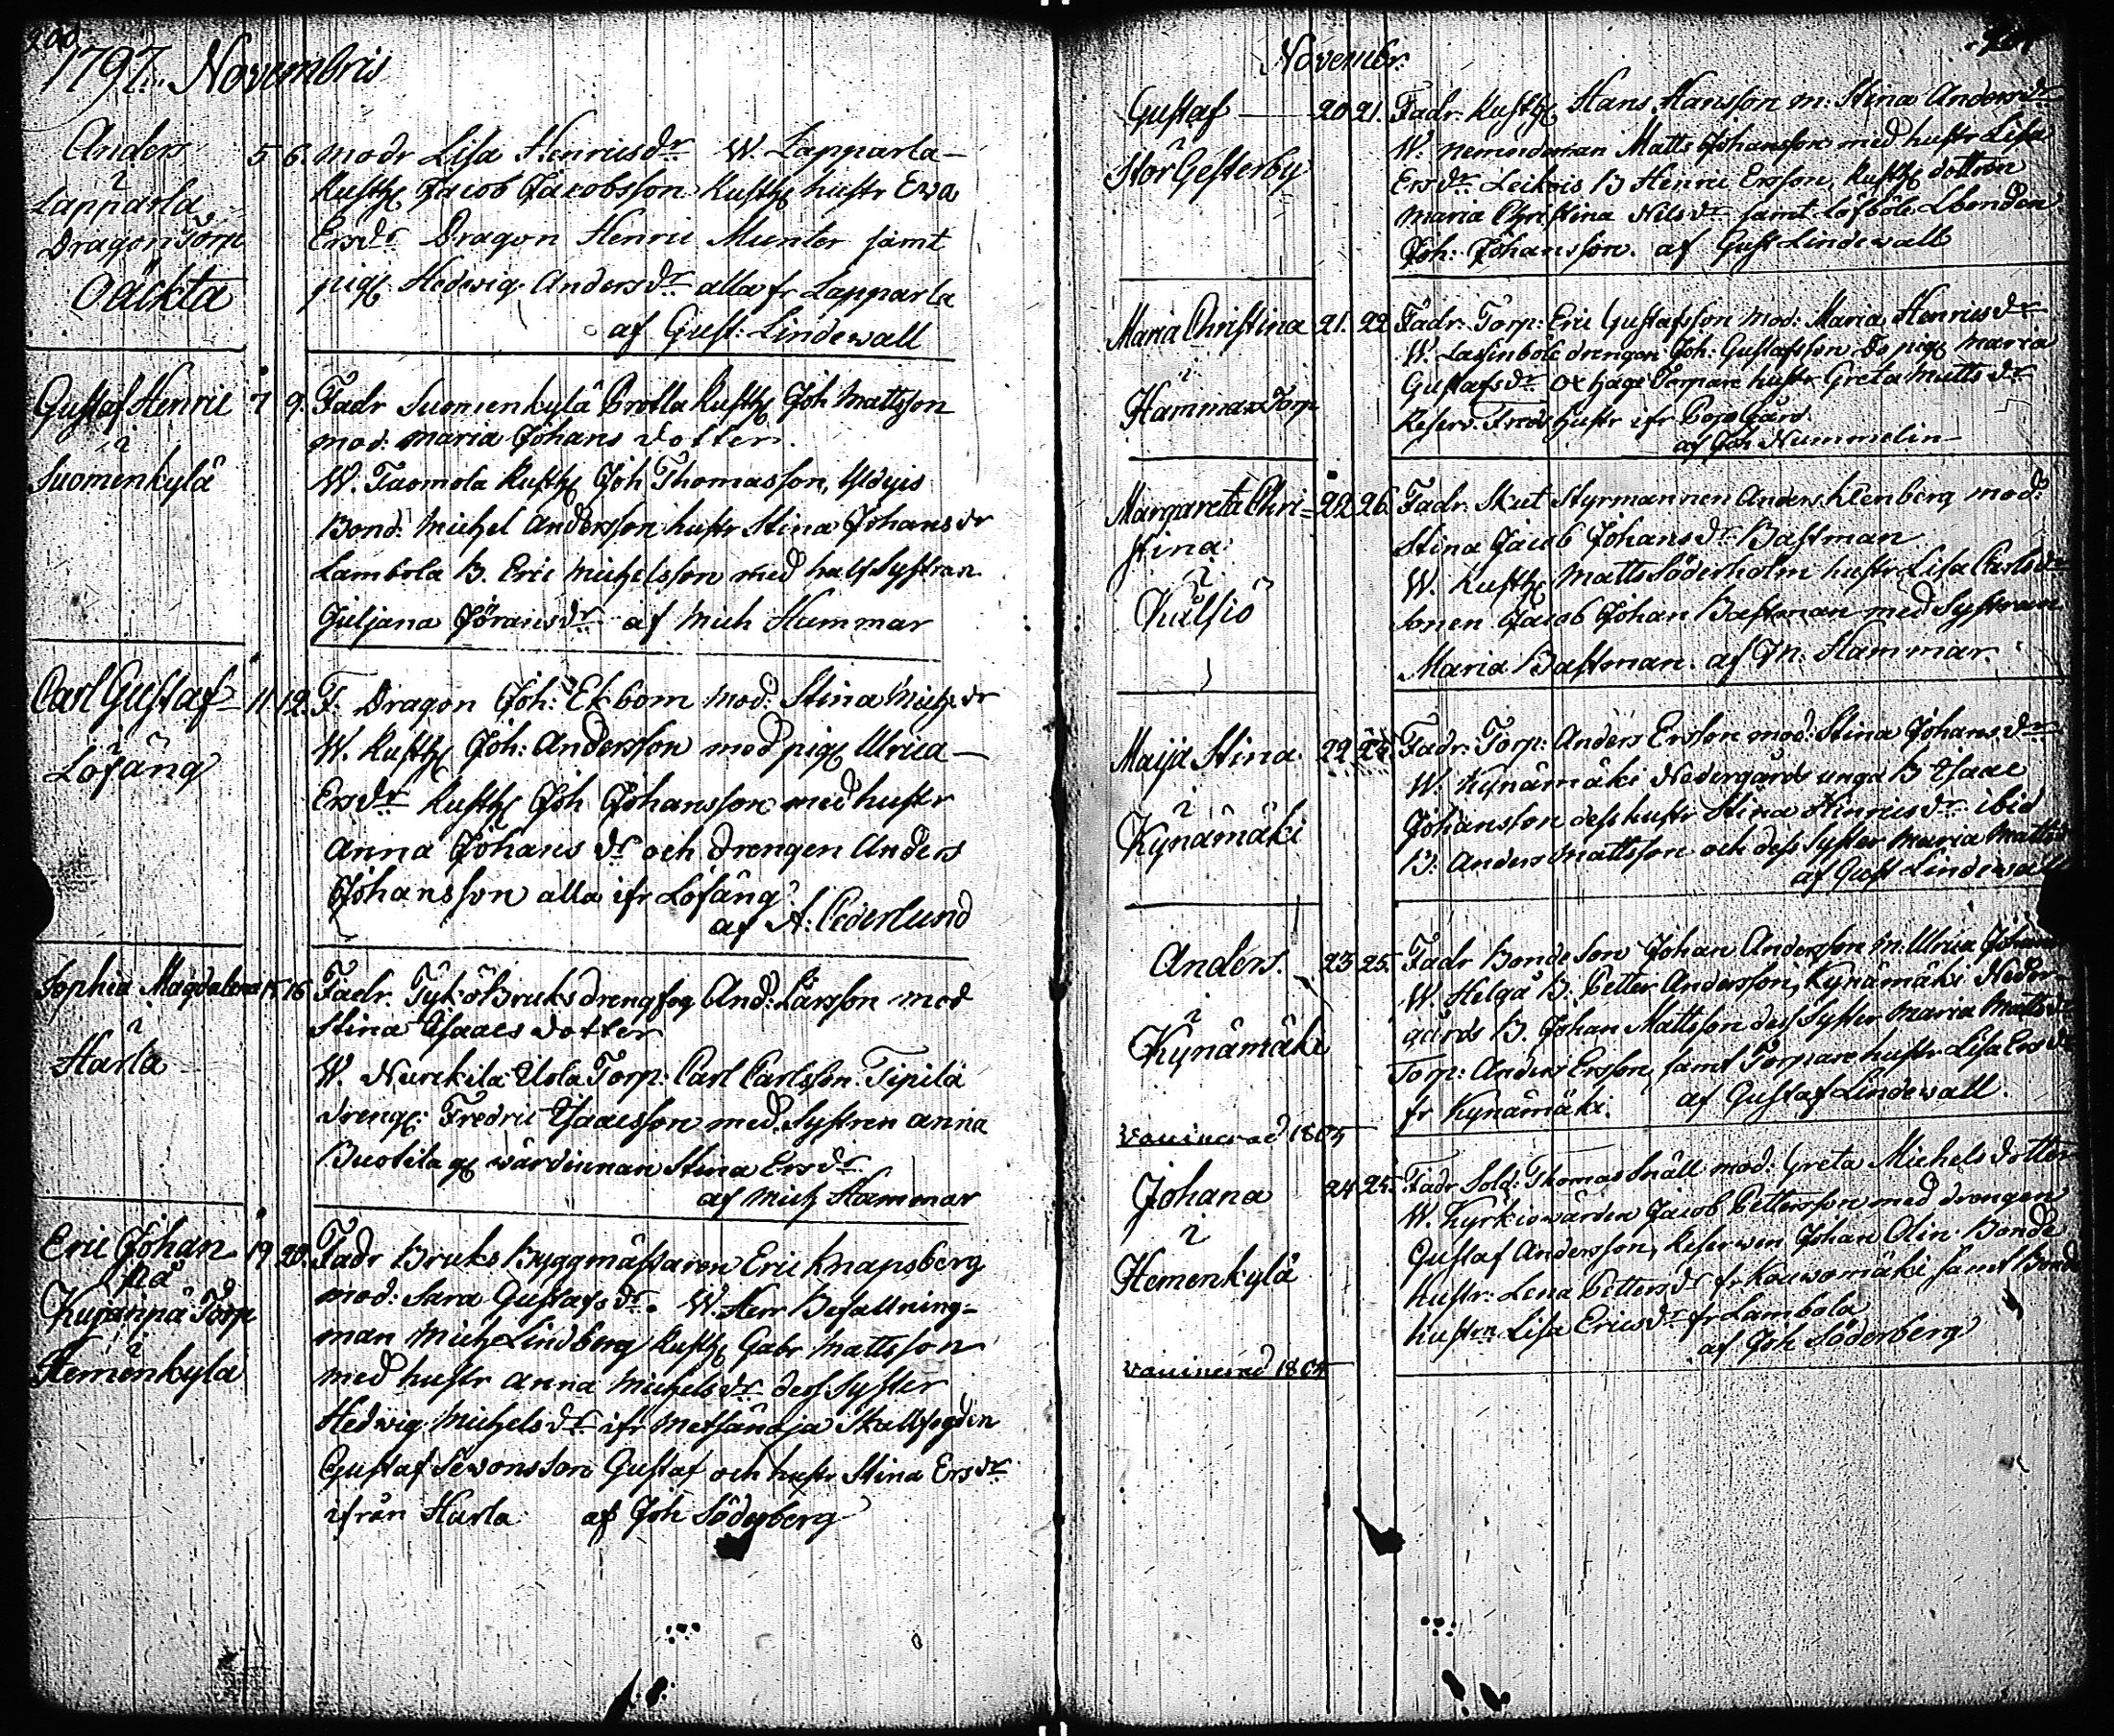 200
1797. Novembris
Anders 5 6. modr Lisa Henricsdr W. Lapparla
i Rusth Jacob Jacobsson Rusth hustr Ewa
Lapparla Ersdr Dragon Henric Munter samt
Dragon Torp pig Hedwig Andersdr alla fr Lapparla
Oäckta af Gust: Lindewall
Gustaf Henric 7 9. Fadr Suomenkylä Prolla Rusth Joh Mattsson
i mod: Maria Johans dotter
Suomenkylä W. Taomola Rusth Joh Thomasson,
Bond. Michel Andersson hustr Stina Johansdr
Lambola B. Eric Michelsson med half Systran
Juljana Jöransdr af Mich Hammar
Carl Gustaf 11 12. F. Dragon Joh: Ekbom Mod: Stina Michdr
i W. Rusth Joh: Andersson med pig Ulrica
Lofäng Ersdr Rusth Joh Johansson med hustr
Anna Johans dr och drengen Anders
Johansson alla ifr Lofäng
af A: Cederlund
Sophia Magdalena 15 16 Fadr. Tykö Bruks drengfog And: Larsson mod
i Stina Isaacs dotter
Harla W. Nurckila Uola Torp: Carl Carlsson. Tipilä
dreng: Fredric Isaacsson med Systren Anna
Buotila g wärdinnan Stina Ersdr
af Mich Hammar
Eric Johan 19 20. Fadr Bruks Byggmästaren Eric Knapsberg
på mod: Sara Gustafsdr. W. Herr Befallning-
Kujanpä Torp man Mich Lindberg Rusth Gabr Mattsson
i med hustr Anna Michelsdr dess Syster
Hemenkylä Hedwig Michelsdr ifr Metsänoja Skallfogden
Gustaf Sewonsson Gustaf och hustr Stina Ersdr
ifrån Harla af Joh Söderberg
Novembr.
Gustaf 20 21. Fadr. Rusth Hans Hansson m: Stina Andersdr
i W. nemndeman Matts Johansson med hustr Lisa
Stor Gesterby Ersdr Leikois B Henric Ersson, Rusth dottren
Maria Christina Nilsdr samt Löfböle Lbonden
Joh: Johansson. af Gust Lindewall
Maria Christina 21. 22 Fadr: Torp: Eric Gustafsson mod: Maria Henricsdr
i W. Lassinböle drengen Joh: Gustafsson Do pig Maria
Hammar Torp Gustafsdr Oxhage Torpare hustr Greta Mattsdr
Reserv. hustr ifr Gård
af Joh Nummelin
Margareta Chri- 22 26. Fadr. Skut Styrmannen Anders Klenberg mod:
stina Stina Jacob Johansdr Bastman
i W. Rusth Matts Söderholm hustr Lisa Carlsdr
Kulsjö sonen Jacob Johan Bastman med Systran
Maria Bastman. af M: Hammar.
Maija Stina 22 24. Fadr: Torp: Anders Ersson mod: Stina Johansdr
i W. Kynämäki Nedergårds unga B Isaac
Kynämäki Johansson dess hustr Stina Henricsdr ibid
B: Anders Mattsson och dess Syster Maria Mattsdr
af Gust Lindewall
Anders. 23 25. Fadr Bonde Son Johan Andersson M: Ulrica Johansdr
i W. Helgå B: Petter Andersson, Kynämäki Neder-
Kynämäki gårds B. Johan Mattsson dess Syster Maria Mattsdr
Torp: Anders Ersson, samt Torpare hustr Lisa Ersdr
fr Kynämäki. af Gustaf Lindewall.
vaccinerad 1804
Johana 24 25. Fadr Sold: Thomas Snäll mod: Greta Michels dotter
i W. Kyrkiowärden Jacob Pettersson med drengen
Hemenkylä Gustaf Andersson, Reserven Johan Olin Bonde
hustr: Lena Pettersdr fr Kauwomäki samt Bonde
hustrn Lisa Ericsdr fr Lambola
af Joh Söderberg
vaccinerad 1804